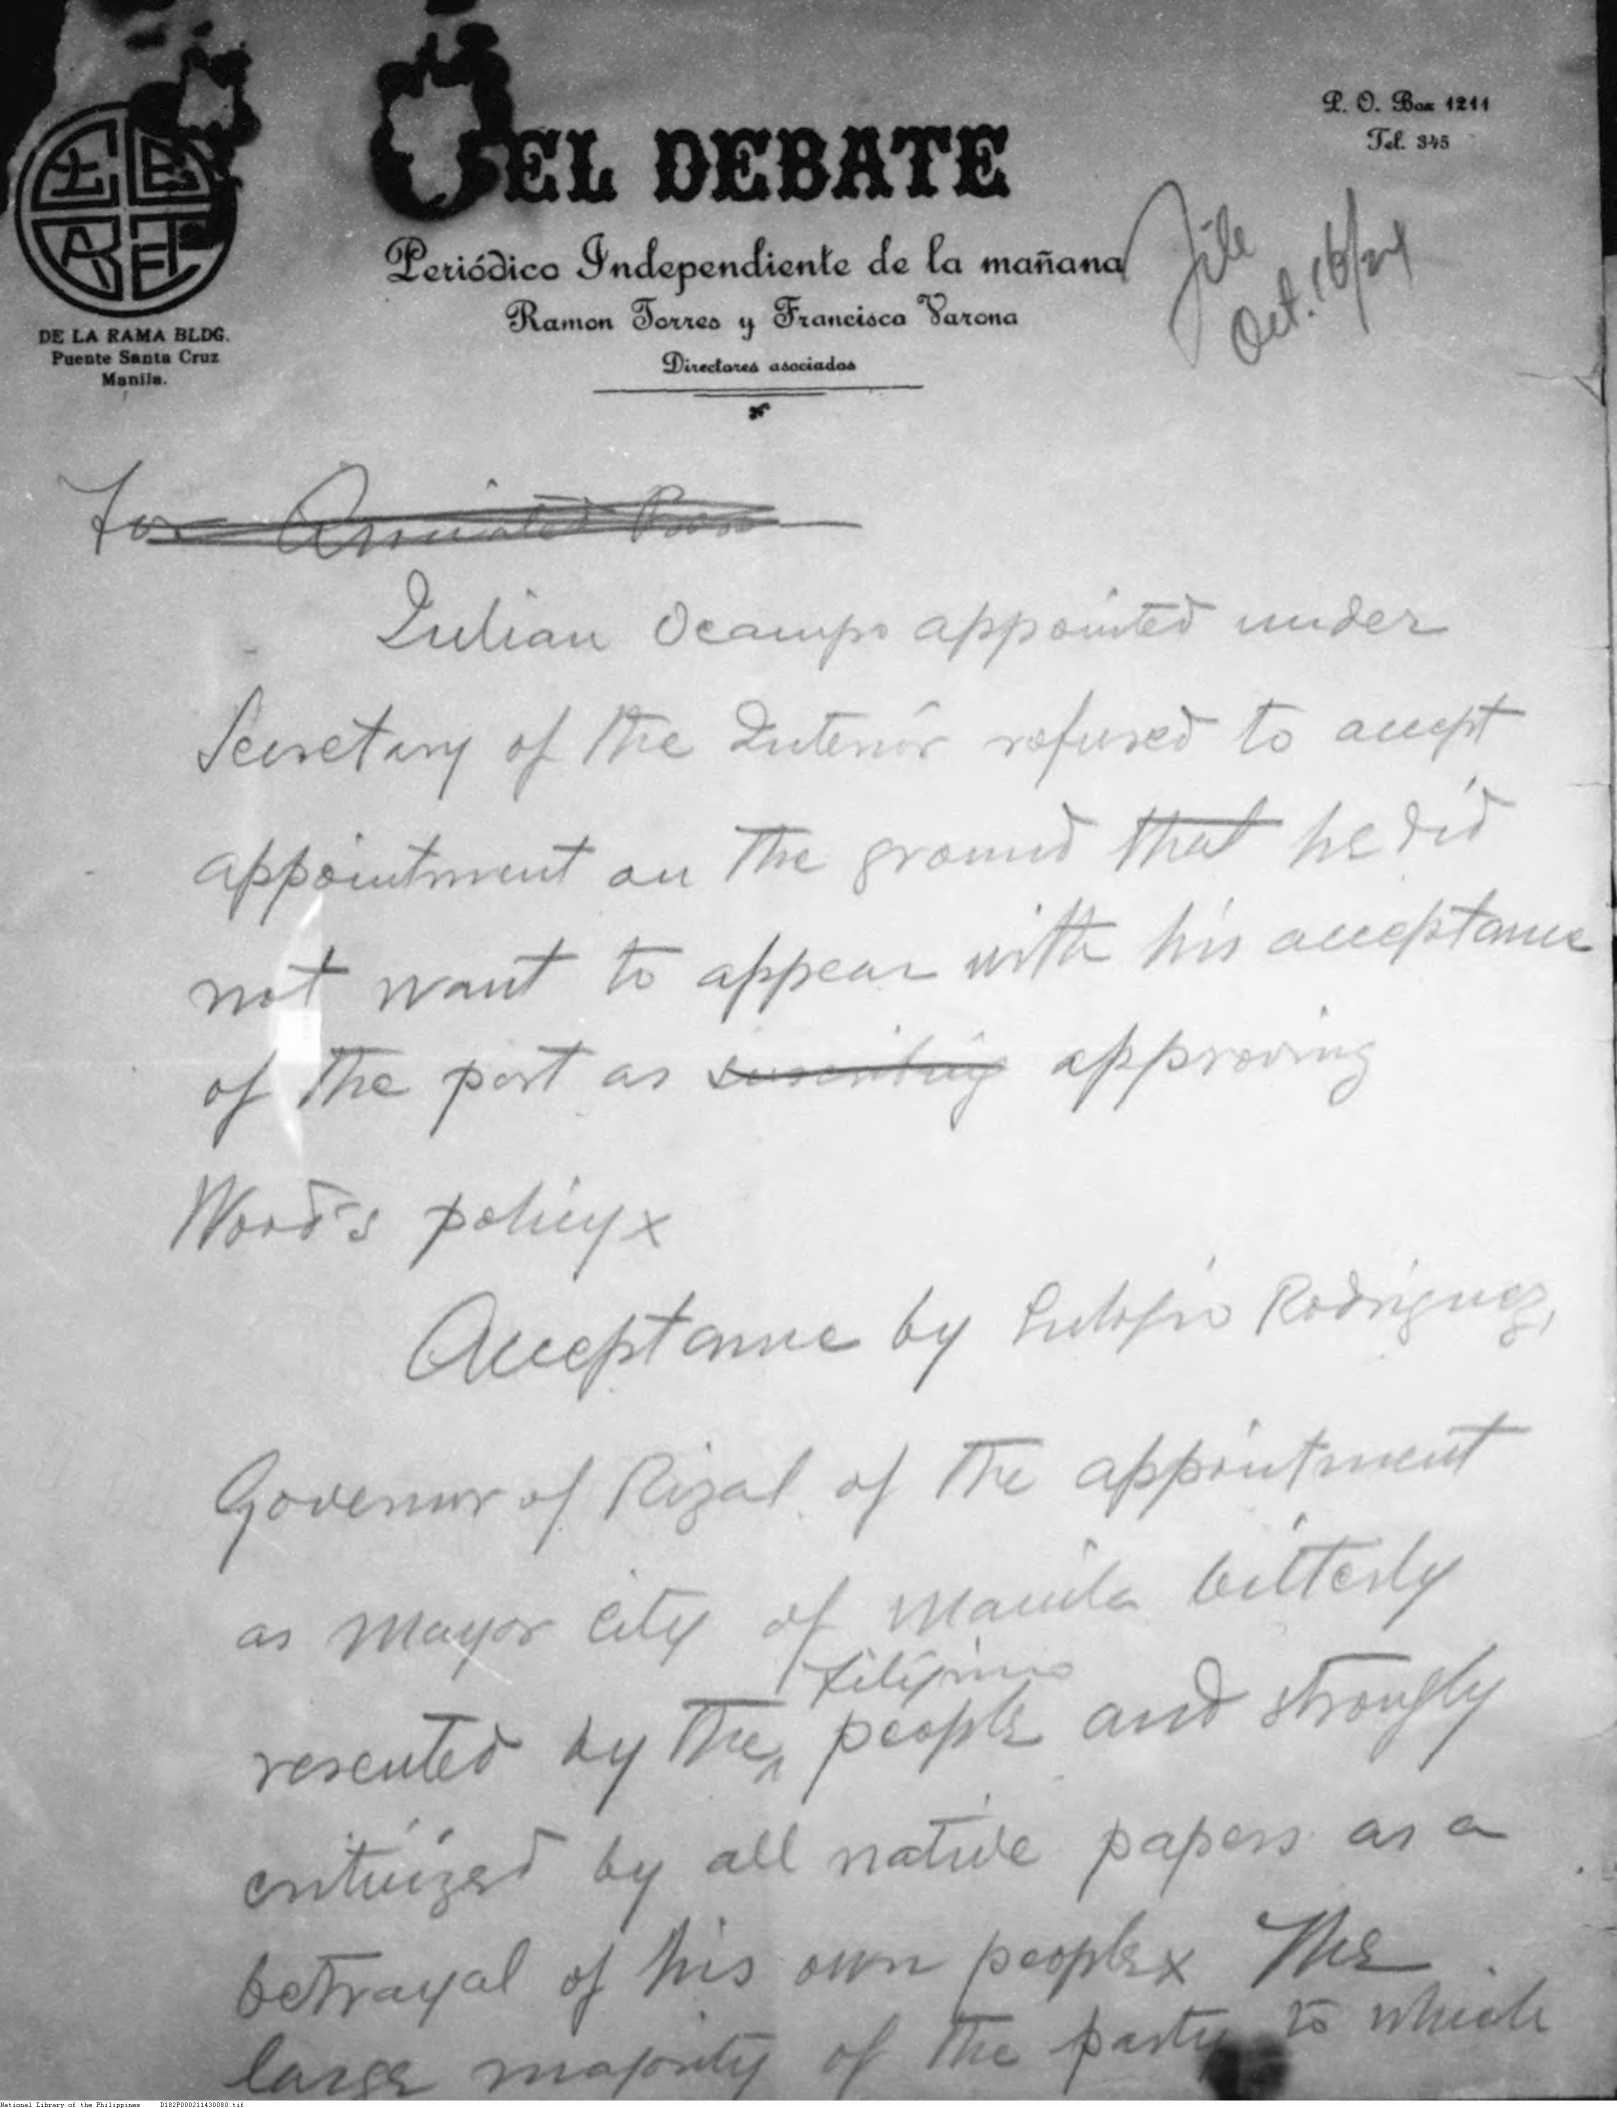 EL DEBATE
Periódico Independiente de la mañana
Ramon Torres y Francisco Varona
Directores asociados
P. O. Box 1211
Tel. 345
DE LA RAMA BLDG.
Puente Santa Cruz
Manila.
File
Oct. 16/24
For Associated Press
Julian Ocampo appointed under
Secretary of the Interior refused to accept
appointment on the ground that he did
not want to appear with his acceptance
of the post as approving
Wood's policy x
Acceptance by Eulogio Rodriguez,
Governor of Rizal of the appointment
as Mayor city of Manila bitterly
resented by the Filipino people and strongly
criticized by all native papers as a
betrayal of his own people x The
large majority of the party to which
National Library of the Philippines D182P000211430080.tif